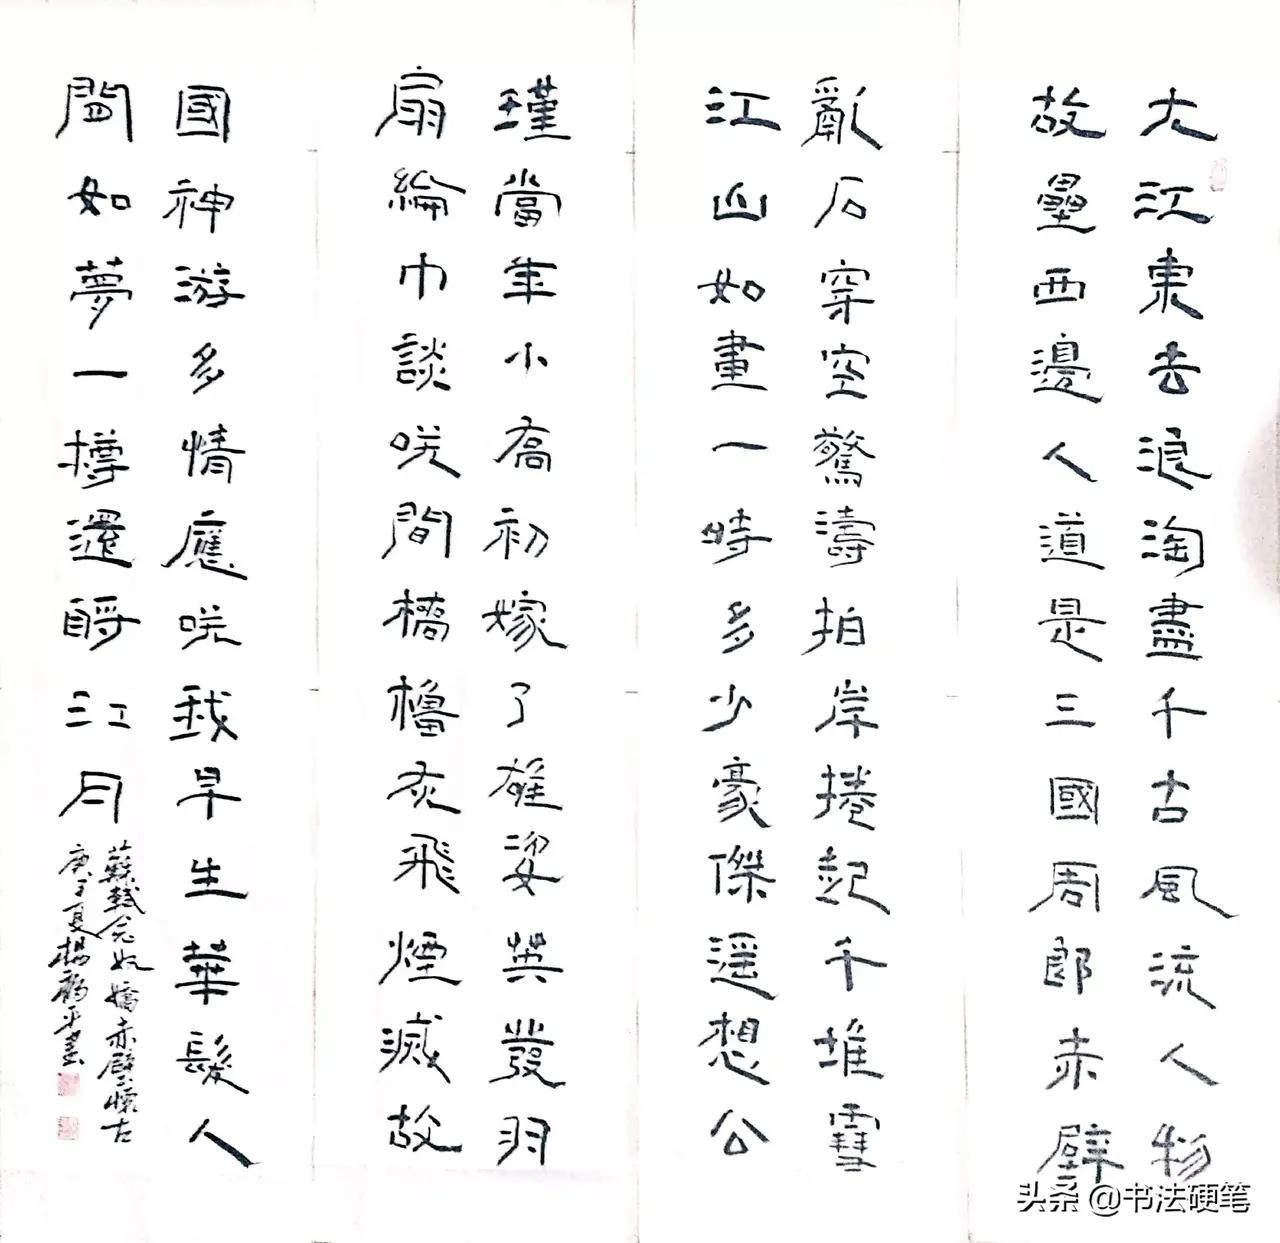 大江東去浪淘盡千古風流人物
故壘西邊人道是三國周郎赤壁
亂石穿空驚濤拍岸捲起千堆雪
江山如畫一時多少豪傑遥想公
瑾當年小喬初嫁了雄姿英發羽
扇綸巾談咲間檣櫓灰飛煙滅故
國神游多情應咲我早生華髮人
間如夢一樽還酹江月
蘇軾念奴嬌赤壁懷古
庚子夏楊
頭条 @书法硬笔